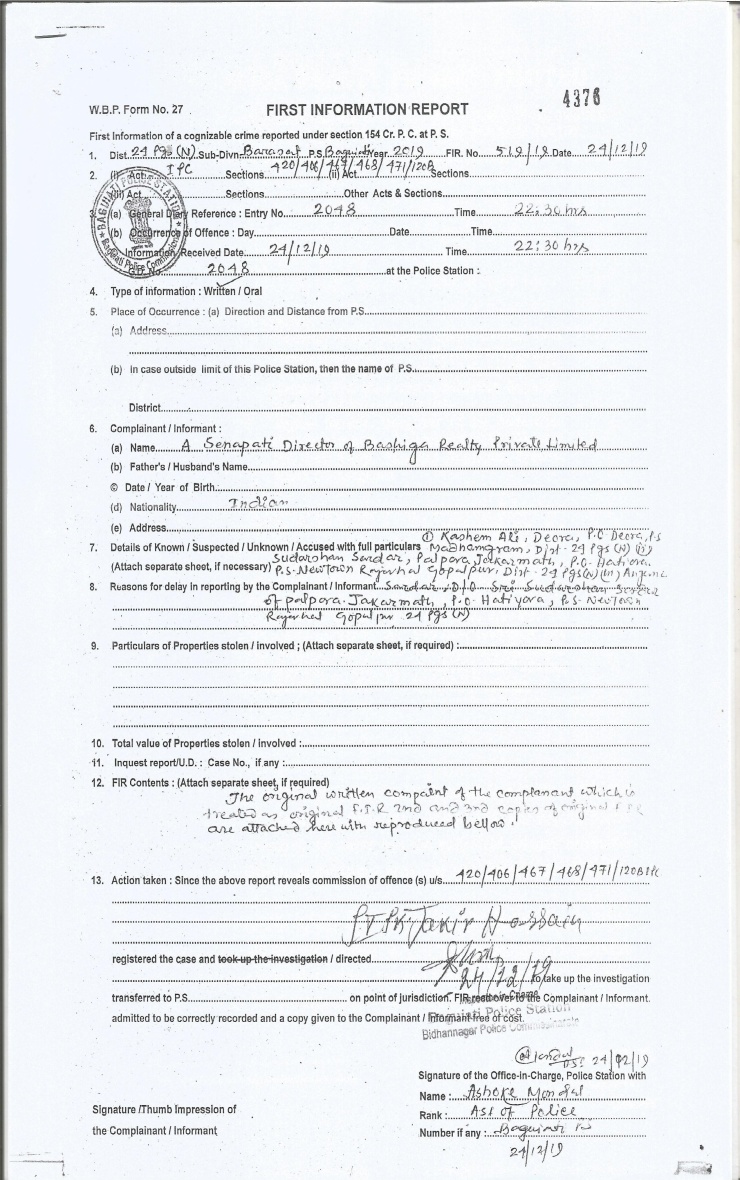 4376
W.B.P. Form No. 27 FIRST INFORMATION REPORT
First Information of a cognizable crime reported under section 154 Cr. P. C. at P. S.
1. Dist. 24 Pgs (N) Sub-Divn. Barasat P.S. Baguiati Year 2019 FIR. No. 519/19 Date 24/12/19
2. (i) Act IPC Sections 420/406/467/468/471/120B (ii) Act Sections
(iii) Act Sections Other Acts & Sections
3. (a) General Diary Reference : Entry No. 2048 Time 22:30 hrs
(b) Occurrence of Offence : Day Date Time
Information Received Date 24/12/19 Time 22:30 hrs
2048 at the Police Station :
BAGUIATI POLICE STATION
4. Type of information : Written / Oral
5. Place of Occurrence : (a) Direction and Distance from P.S.
(a) Address
(b) In case outside limit of this Police Station, then the name of P.S.
District
6. Complainant / Informant :
(a) Name A Senapati Director of Bashiga Realty Private Limited
(b) Father's / Husband's Name
© Date / Year of Birth
(d) Nationality Indian
(e) Address
① Kashem Ali, Deora, P.O Deora, P.S
7. Details of Known / Suspected / Unknown / Accused with full particulars Madhamgram, Dist- 24 Pgs (N) (ii)
(Attach separate sheet, if necessary) Sudarshan Sardar, Palpara, Jakarmath, P.O. Hatiara,
P.S. NewTown Rajarhat Gopalpur, Dist- 24 Pgs (N) (iii)
8. Reasons for delay in reporting by the Complainant / Informant Sardar, D/O Sri Sudarshan Sardar
of Palpara, Jakarmath, P.O- Hatiyara, P.S- NewTown
Rajarhat Gopalpur 24 Pgs (N)
9. Particulars of Properties stolen / involved ; (Attach separate sheet, if required) :
10. Total value of Properties stolen / involved :
11. Inquest report/U.D. : Case No., if any :
12. FIR Contents : (Attach separate sheet, if required)
The original written compaint of the complanant which is
treated as original F.I.R 2nd and 3rd copies of original FIR
are attached here with reproduced bellow.
13. Action taken : Since the above report reveals commission of offence (s) u/s 420/406/467/468/471/120B IPC
Jakir Hossain
registered the case and took up the investigation / directed
24/12/19 to take up the investigation
transferred to P.S. on point of jurisdiction. FIR read over to the Complainant / Informant.
admitted to be correctly recorded and a copy given to the Complainant / Informant free of cost.
Baguiati Police Station
Bidhannagar Police Commissionerate
24/12/19
Signature of the Office-in-Charge, Police Station with
Name : Ashoke Mondal
Signature /Thumb Impression of
Rank : ASI of Police
the Complainant / Informant
Number if any : Baguiati PS
24/12/19